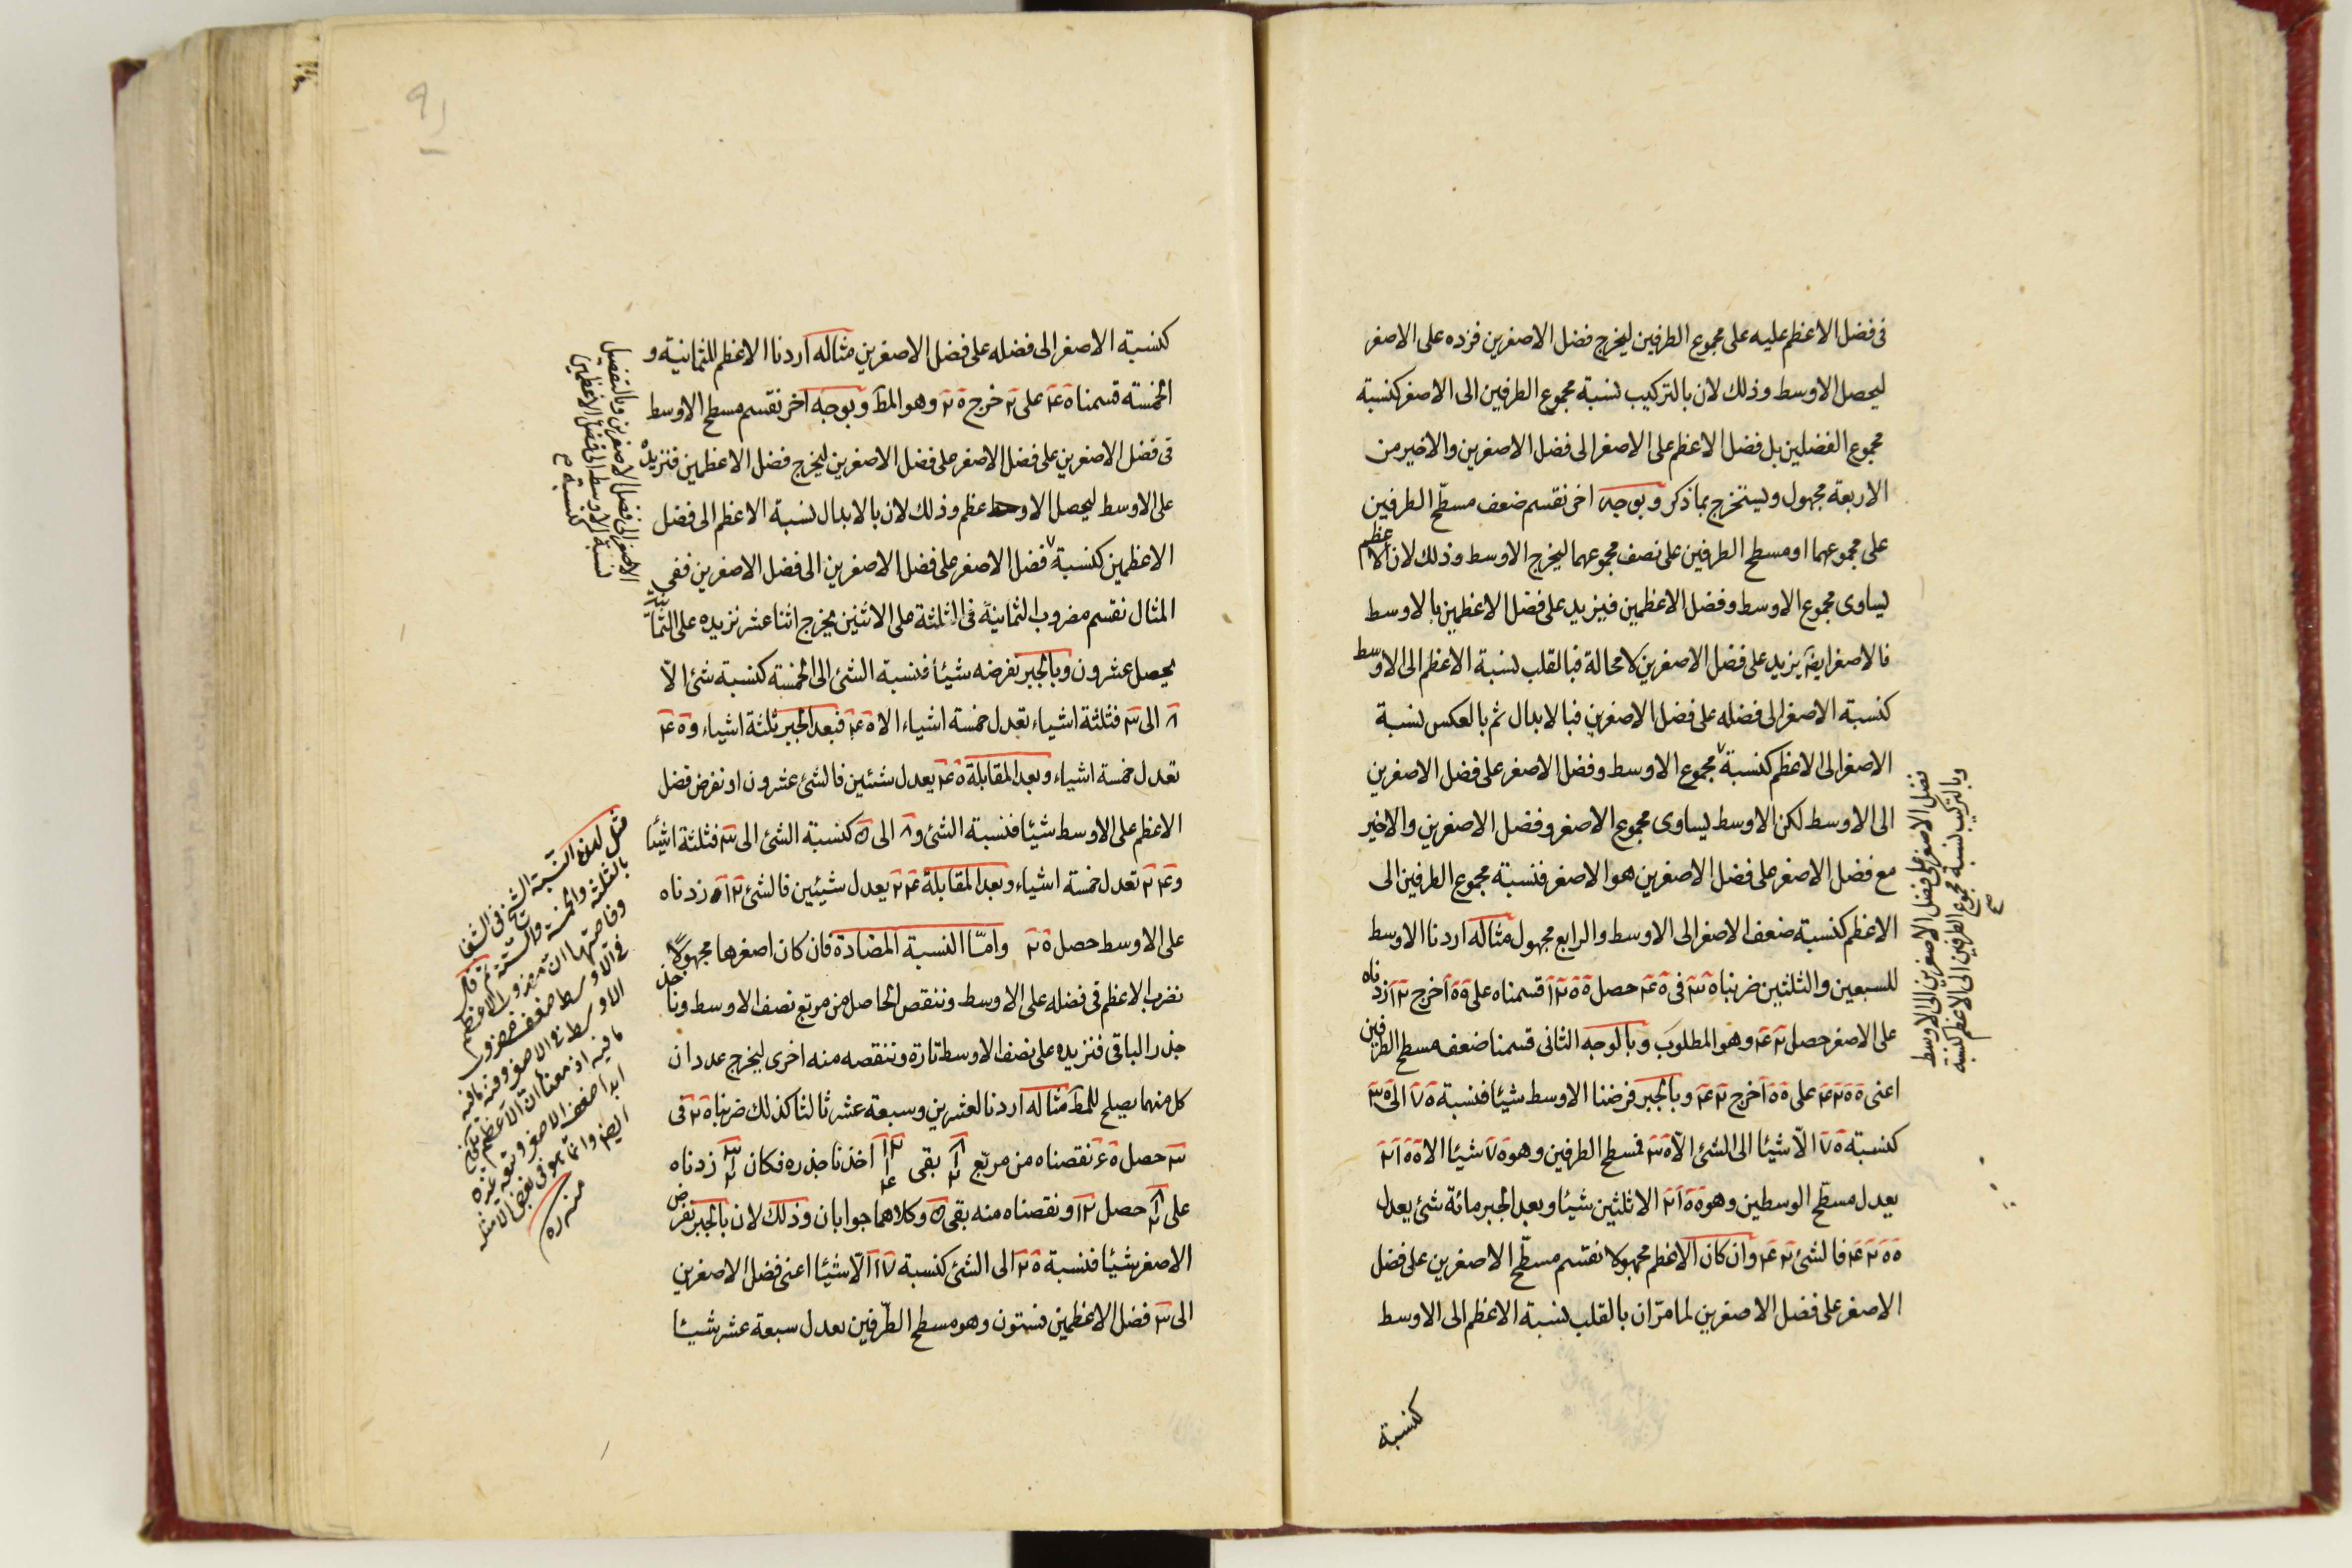 فى فضل الاعظم عليه على مجموع الطرفين ليخرج فضل الاصغرين فزده على الاصغر
ليحصل الاوسط وذلك لان بالتركيب نسبة مجموع الطرفين الى الاصغر كنسبة
مجموع الفضلين بل فضل الاعظم على الاصغر الى فضل الاصغرين والاخير من
الاربعة مجهول ويستخرج بما ذكر وبوجه اخر نقسم ضعف مسطّح الطرفين
على مجموعهما او مسطح الطرفين على نصف مجموعهما ليخرج الاوسط وذلك لان الاعظم
يساوى مجموع الاوسط وفضل الاعظمين فيزيد على فضل الاعظمين بالاوسط
فالاصغر ايضا يزيد على فضل الاصغرين لا محالة فبالقلب نسبة الاعظم الى الاوسط
كنسبة الاصغر الى فضله على فضل الاصغرين فبالابدال ثم بالعكس نسبة
الاصغر الى الاعظم كنسبة مجموع الاوسط وفضل الاصغر على فضل الاصغرين
الى الاوسط لكن الاوسط يساوى مجموع الاصغر وفضل الاصغرين والاخير
مع فضل الاصغر على فضل الاصغرين هو الاصغر فنسبة مجموع الطرفين الى
الاعظم كنسبة ضعف الاصغر الى الاوسط والرابع مجهول مثاله اردنا الاوسط
للسبعين والثلثين ضربناه ٣٥ فى ٤٥ حصل ١٢٥٥ قسمناه على ١٥٥ خرج ١٢ زدناه
على الاصغر حصل ٤٢ وهو المطلوب وبالوجه الثانى قسمنا ضعف مسطح الطرفين
اعنى ٤٢٥٥ على ١٥٥ خرج ٤٢ وبالجبر فرضنا الاوسط شيئا فنسبة ٧٥ الى ٣٥
كنسبة ٧٥ الّا شيئا الى الشئ الّا ٣٥ فمسطح الطرفين وهو ٧٥ شيئا الا ٢١٥٥
يعدل مسطّح الوسطين وهو ٢١٥٥ الا ثلثين شيئا وبعد الجبر مائة شئ يعدل
٤٢٥٥ فالشئ ٤٢ وان كان الاعظم مجهولا نقسم مسطّح الاصغرين على فضل
الاصغر على فضل الاصغرين لما مرّ ان بالقلب نسبة الاعظم الى الاوسط
كنسبة
فضل الاصغر على فضل الاصغرين الى الاوسط
وبالتركيب نسبة مجموع الطرفين الى الاعظم كنسبة
كنسبة الاصغر الى فضله على فضل الاصغرين مثاله اردنا الاعظم للثمانية و
الخمسة قسمنا ٤٥ على ٢ خرج ٢٥ وهو المط وبوجه اخر نقسم مسطح الاوسط
فى فضل الاصغرين على فضل الاصغر على فضل الاصغرين ليخرج فضل الاعظمين فنزيده
على الاوسط ليحصل الاعظم وذلك لان بالابدال نسبة الاعظم الى فضل
الاعظمين كنسبة فضل الاصغر على فضل الاصغرين الى فضل الاصغرين ففى
المثال نقسم مضروب الثمانية فى الثلثة على الاثنين يخرج اثنا عشر نزيده على الثمانية
يحصل عشرون وبالجبر نفرضه شيئا فنسبة الشئ الى الخمسة كنسبة شئ الّا
٨ الى ٣ فثلثة اشياء تعدل خمسة اشياء الا ٤٥ فبعد الجبر ثلثة اشياء و ٤٥
تعدل خمسة اشياء وبعد المقابلة ٤٥ يعدل شيئين فالشئ عشرون او نفرض فضل
الاعظم على الاوسط شيئا فنسبة الشئ و ٨ الى ٥ كنسبة الشئ الى ٣ فثلثة اشيا
و ٢٤ تعدل خمسة اشياء وبعد المقابلة ٢٤ يعدل شيئين فالشئ ١٢ زدناه
على الاوسط حصل ٢٥ وامّا النسبة المضادة فان كان اصغرها مجهولا
نضرب الاعظم فى فضله على الاوسط وننقص الحاصل من مربع نصف الاوسط وناخذ
جذر الباقى فنزيده على نصف الاوسط تارة وننقصه منه اخرى ليخرج عددان
كل منهما يصلح للمط مثاله اردنا لعشرين وسبعة عشر ثالثا كذلك ضربنا ٢٥ فى
٣ حصل ٦٥ نقصناه من مربّع ٨ ٢ بقى ١٢ ١ ٤ اخذنا جذره فكان ٣ ٢ زدناه
على ٨ ٢ حصل ١٢ ونقصناه منه بقى ٥ وكلاهما جوابان وذلك لان بالجبر نفرض
الاصغر شيئا فنسبة ٢٥ الى الشئ كنسبة ١٧ الّا شيئا اعنى فضل الاصغرين
الى ٣ فضل الاعظمين فستون وهو مسطح الطرفين يعدل سبعة عشر شيئا
الاصغر الى فضل الاصغرين وبالتفضيل
نسبة الاوسط الى فضل الاعظمين
كنسبة
مثل لهذه النسبة الشيخ فى الشفا
بالثلثة والخمسة والستة ثم قال
وخاصتها ان مضروب الاعظم
فى الاوسط ضعف مضروب
الاوسط فى الاصغر وفيه ما فيه
ابدا ضعف الاصغر
ايضا وانما هو فى بعض الامثلة
منه ره